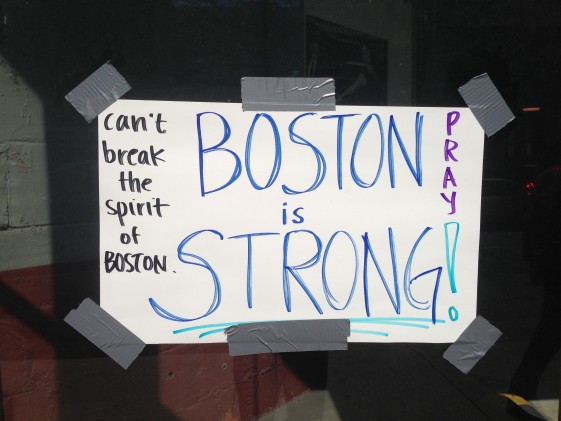 can't
break
the
spirit
of
BOSTON.
BOSTON
is
STRONG!
PRAY